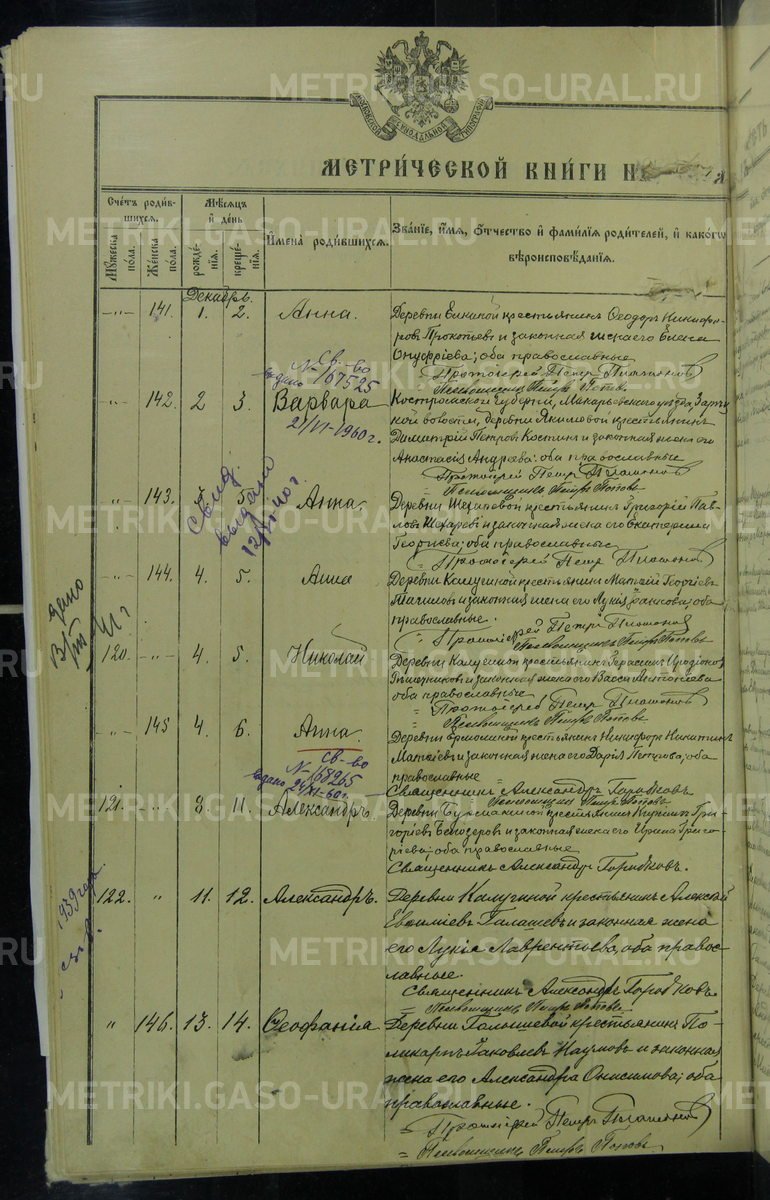 METRIKI.GASO-URAL.RU
МОСКОВСКОЙ СѴНОДАЛЬНОЙ ТИПОГРАФІИ
МЕТРИ́ЧЕСКОЙ КНИ́ГИ Н
Сче́тъ роди́в-
шихся.
Му́жеска
по́ла.
Же́нска
по́ла.
Мѣ́сяцъ
и҆ де́нь
рожде́-
нїя.
креще́-
нїя.
И҆мена̀ роди́вшихся.
Зва́нїе, и҆́мя, ѻ҆́тчество и҆ фами́лїя роди́телей, и҆ како́гѡ
вѣроисповѣ́данїя.
Декабрь.
-„- 141. 1. 2. Анна.
Деревни крестьянинъ Ѳеодоръ Никифо-
ровъ Прокопьевъ и законная жена его Елена
Онуфріева; оба православные
Протоіерей Петръ Платоновъ
Псаломщикъ Петръ Поповъ
Св-во
№ 167525
выдано
21/VI-1960г.
„ 142. 2 3. Варвара
Костромской губерніи, Макарьевскаго уѣзда,
ской волости, деревни Якимовой крестьянинъ
Димитрій Петровъ Костинъ и законная жена его
Анастасія Андреева: оба православные
Протоіерей Петръ Платоновъ
Псаломщикъ Петръ Поповъ
Свид.
выдано
„ 143. 5. Анна.
Деревни крестьянинъ Григорій Пав-
ловъ и законная жена его Екатерина
Георгіева; оба православные
Протоіерей Петръ Платоновъ
-„- 144. 4. 5. Анна
Деревни Калугиной крестьянинъ Матѳій Георгіевъ
и законная жена его Лукія оба
православные.
Протоіерей Петръ Платоновъ
Псаломщикъ Петръ Поповъ
41 г
120. -„- 4. 5. Николай
Деревни крестьянинъ Герасимъ Иродіоновъ
и законная жена его Васса Антоніева
оба православные
Протоіерей Петръ Платоновъ
Псаломщикъ Петръ Поповъ
-„- 145 4. 6. Анна.
Деревни Ермошиной крестьянинъ Никифоръ Никитинъ
Матѳіевъ и законная жена его Дарія Петрова; оба
православные
Священникъ Александръ Горбковъ
Псаломщикъ Петръ Поповъ
св-во
№ 168265
выдано 24/XI-60г.
121. „ 8. 11. Александръ.
Деревни Бурмакиной крестьянинъ Кириллъ Гри-
горіевъ Белозеровъ и законная жена его Ирина Григо-
ріева; оба православные
Священникъ Александръ Горбковъ.
1939 года
122. „ 11. 12. Александръ.
Деревни Калугиной крестьянинъ Алексѣй
Евѳиміевъ Палашевъ и законная жена
его Лукія Лаврентьева, оба правос-
лавные.
Священникъ Александръ Горбковъ.
Псаломщикъ Петръ Поповъ
„ 146. 13. 14. Ѳеофанія.
Деревни крестьянинъ По-
ликарпъ Яковлевъ Наумовъ и законная
жена его Александра Онисимова; оба
православные.
Протоіерей Петръ Платоновъ
Псаломщикъ Петръ Поповъ